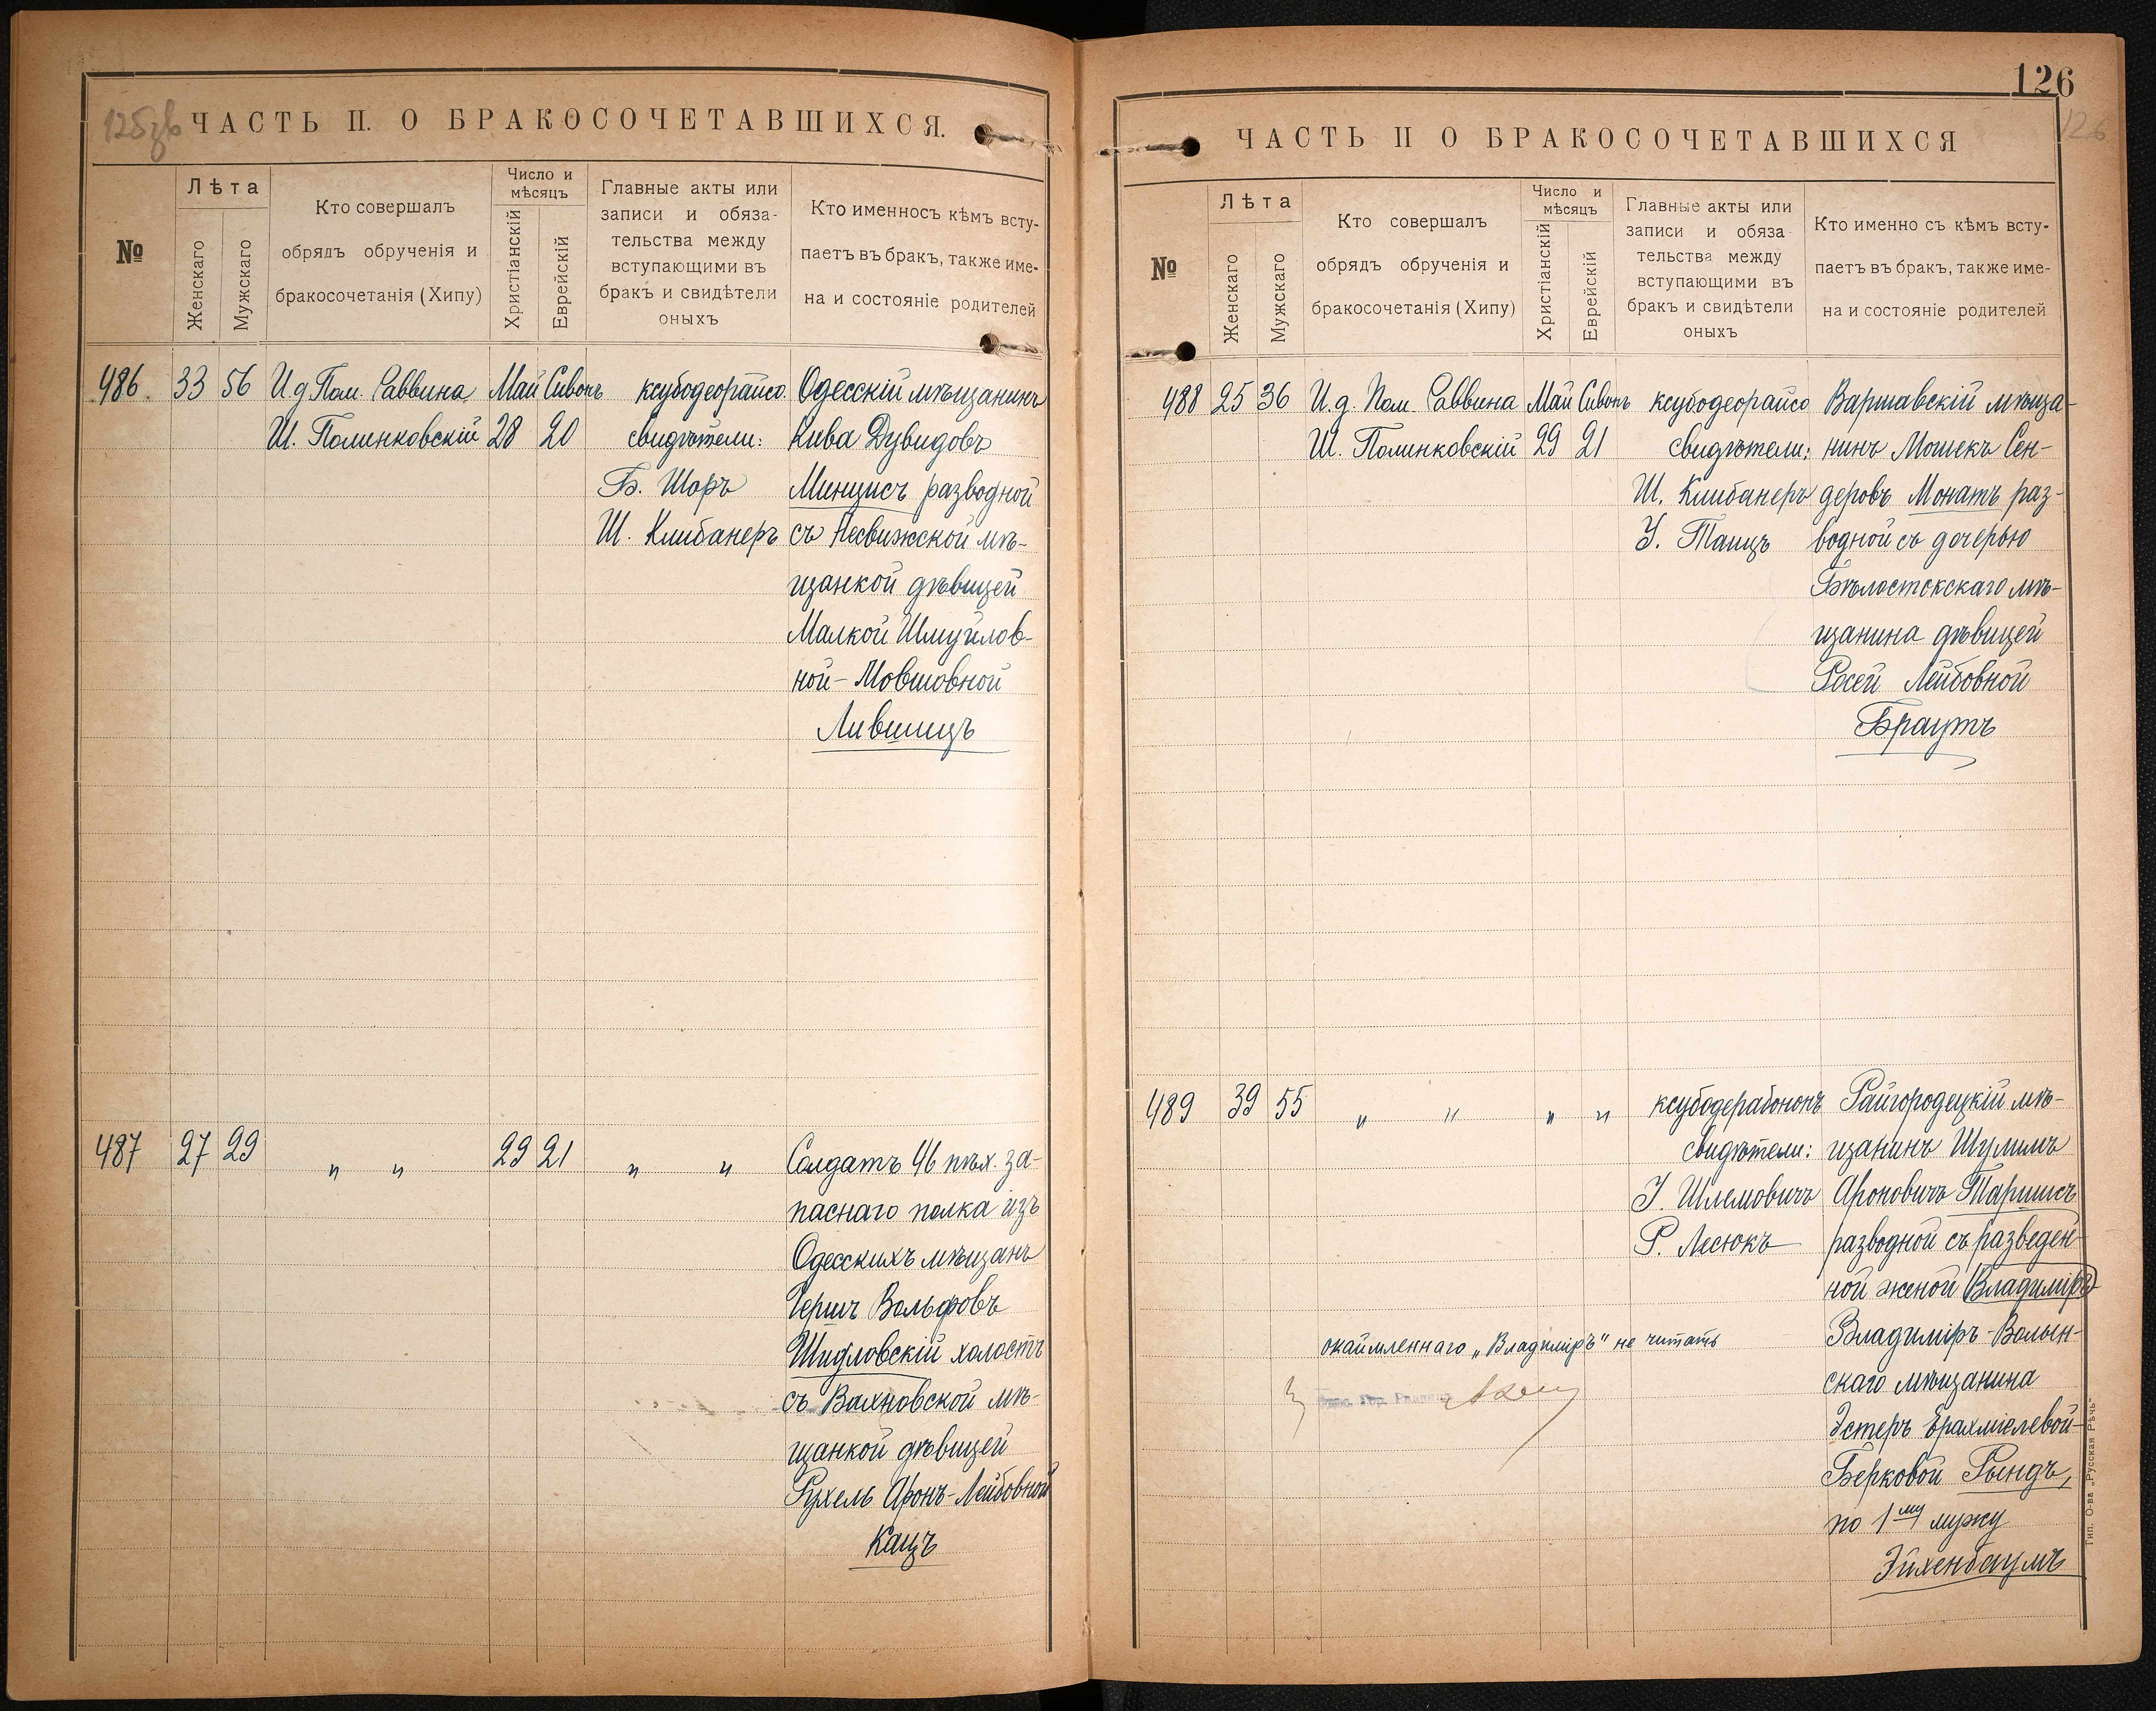 125зв
ЧАСТЬ II. О БРАКОСОЧЕТАВШИХСЯ.
№
Лѣта
Женскаго
Мужскаго
Кто совершалъ
обрядъ обрученія и
бракосочетанія (Хипу)
Число и
мѣсяцъ
Христіанскій
Еврейскій
Главные акты или
записи и обяза-
тельства между
вступающими въ
бракъ и свидѣтели
оныхъ
Кто именносъ кѣмъ всту-
паетъ въ бракъ, также име-
на и состояніе родителей
486. 33 56 И д Пом. Раввина Май Сивонъ ксубодеорайсо. Одесскій мѣщанинъ
Ш. Полинковскій 28 20 свидѣтели: Кива Дувидовъ
Б. Шоръ Минцисъ разводной
Ш. Клибанеръ съ Несвижской мѣ-
щанкой дѣвицей
Малкой Шмуйлов-
ной-Мовшовной
Лившицъ
487 27 29 „ „ 29 21 „ „ Солдатъ 46 пѣх. за-
паснаго полка изъ
Одесскихъ мѣщанъ
Гершъ Вольфовъ
Шидловскій холостъ
съ Вахновской мѣ-
щанкой дѣвицей
Рухель Аронъ-Лейбовной
Кацъ
126
126
ЧАСТЬ II О БРАКОСОЧЕТАВШИХСЯ
№
Лѣта
Женскаго
Мужскаго
Кто совершалъ
обрядъ обрученія и
бракосочетанія (Хипу)
Число и
мѣсяцъ
Христіанскій
Еврейскій
Главные акты или
записи и обяза
тельства между
вступающими въ
бракъ и свидѣтели
оныхъ
Кто именно съ кѣмъ всту-
паетъ въ бракъ, также име-
на и состояніе родителей
488 25 36 И.д. Пом. Раввина Май Сивонъ ксубодеорайсо Варшавскій мѣща-
Ш. Полинковскій 29 21 свидѣтели: нинъ Мошекъ Сен-
Ш. Клибанеръ деровъ Монатъ раз-
У. Танцъ водной съ дочерью
Бѣлостокскаго мѣ-
щанина дѣвицей
Росей Лейбовной
Браутъ
489 39 55 „ „ „ „ ксубодерабононъ Райгородецкій мѣ-
свидѣтели: щанинъ Шулимъ
У. Шлемовичъ Ароновичъ Таришсъ
Р. Лесюкъ разводной съ разведен-
ной женой Владиміръ
Владиміръ-Волын-
скаго мѣщанина
Эстеръ Ерахміелевой-
Берковой Рындъ,
по 1му мужу
Эйхенбаумъ
окаймленнаго „Владиміръ" не читать
Тип. О-ва „Русская Рѣчь"